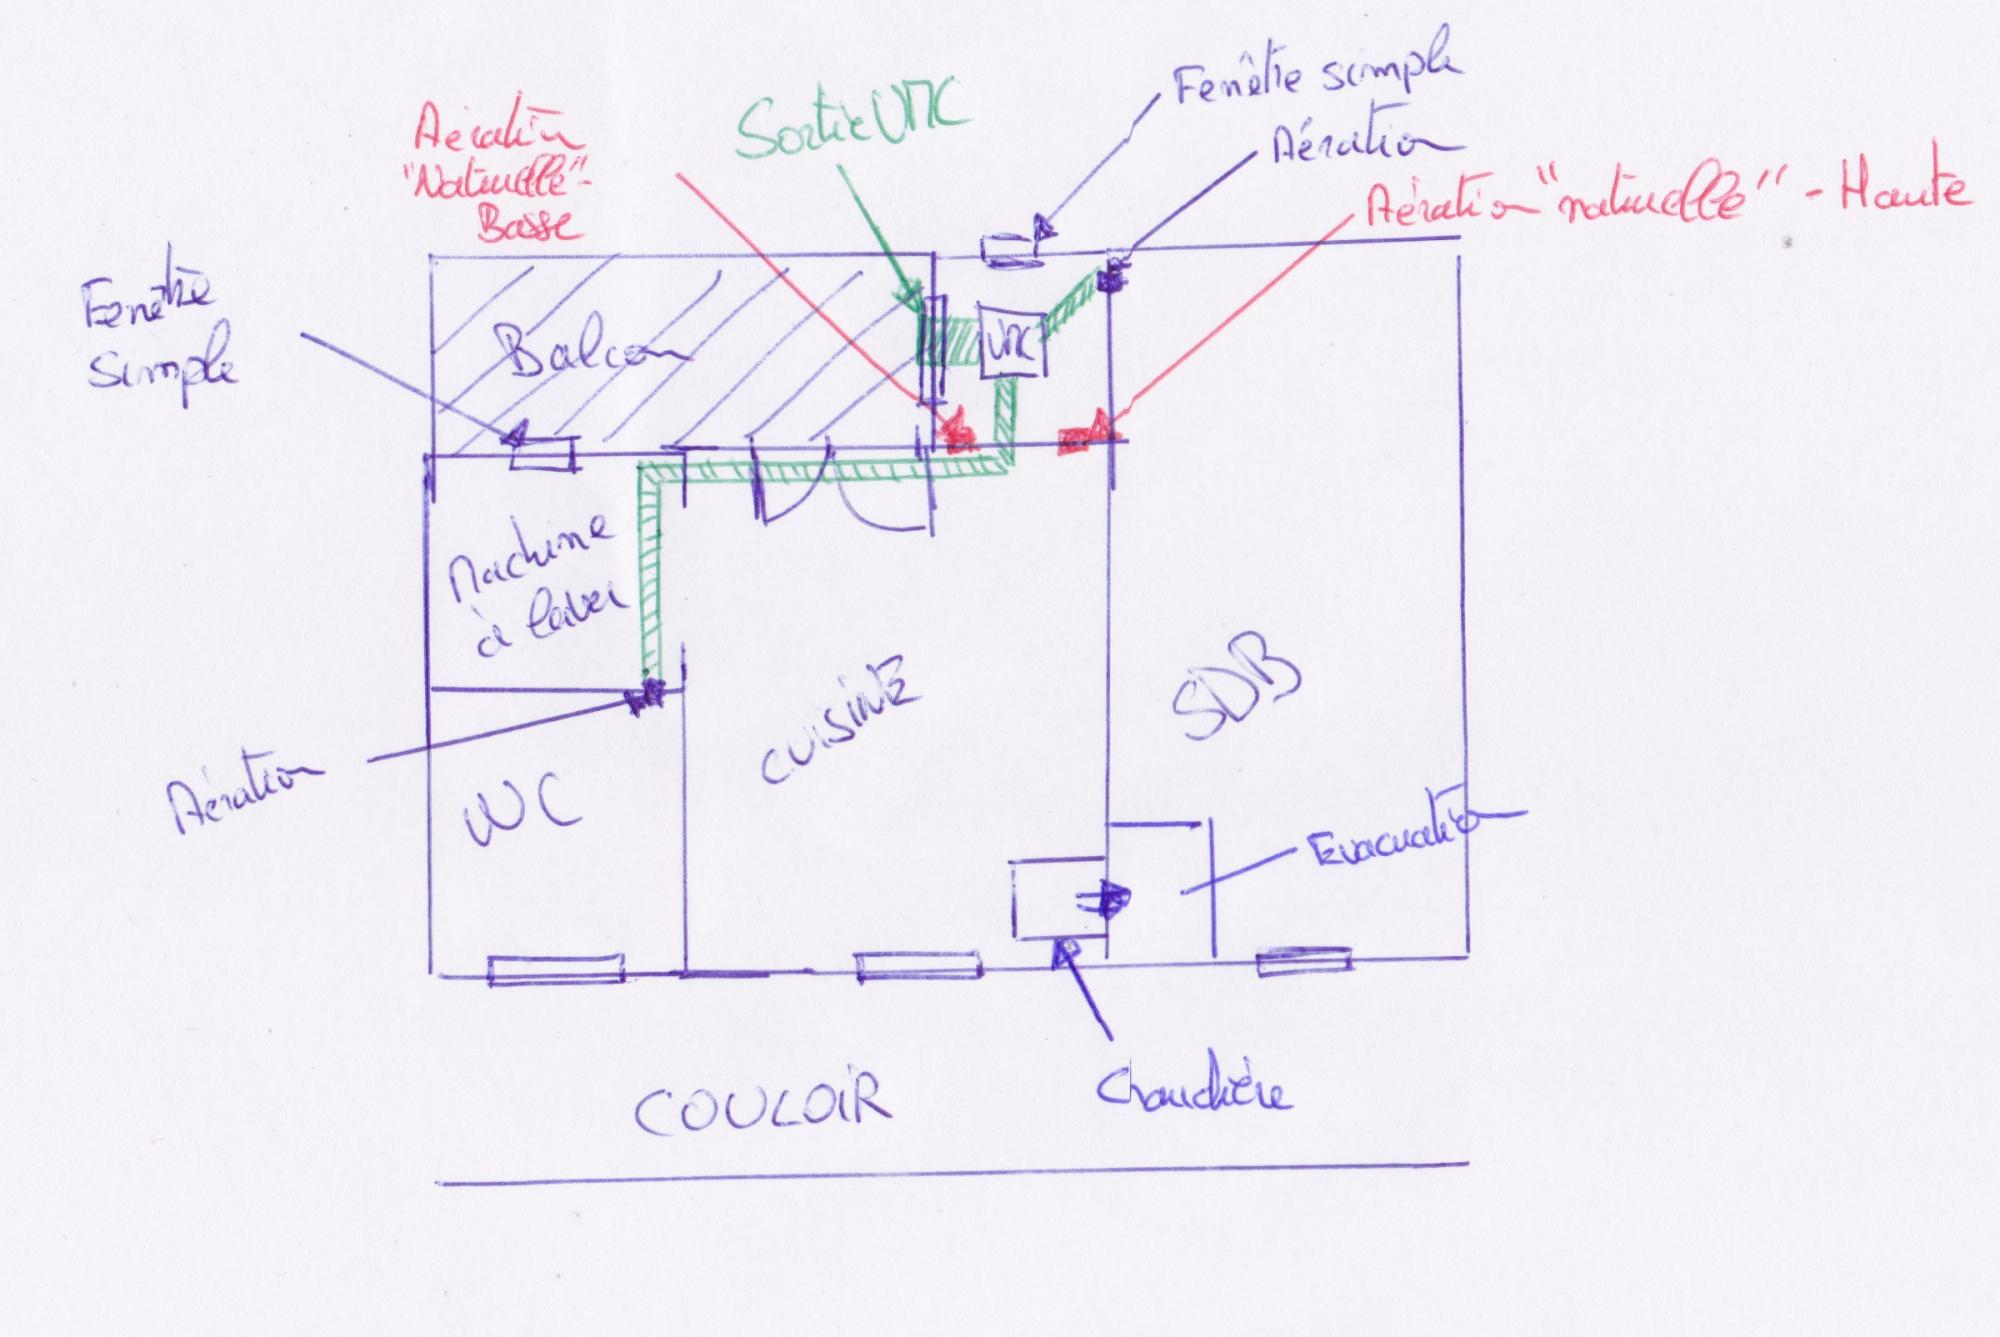 Fenêtre simple
Aération
Aération "naturelle" - Haute
Sortie VMC
Aération
"Naturelle"-
Basse
Fenêtre
simple
Balcon
VMC
Machine
à laver
CUISINE
SDB
Aération
WC
Evacuation
Chaudière
COULOIR